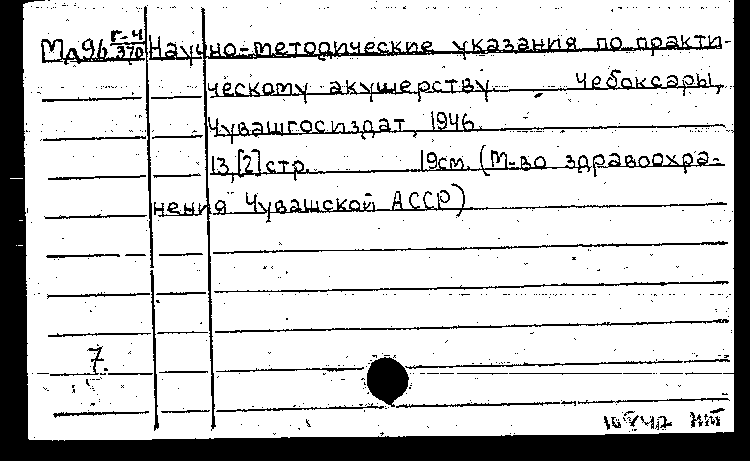 Мд96 Г-4/370 Научно-методические указания по практи-
ческому акушерству. Чебоксары,
Чувашгосиздат, 1946.
13,[2] стр. 19см. (М-во здравоохра-
нения Чувашской АССР)
7.